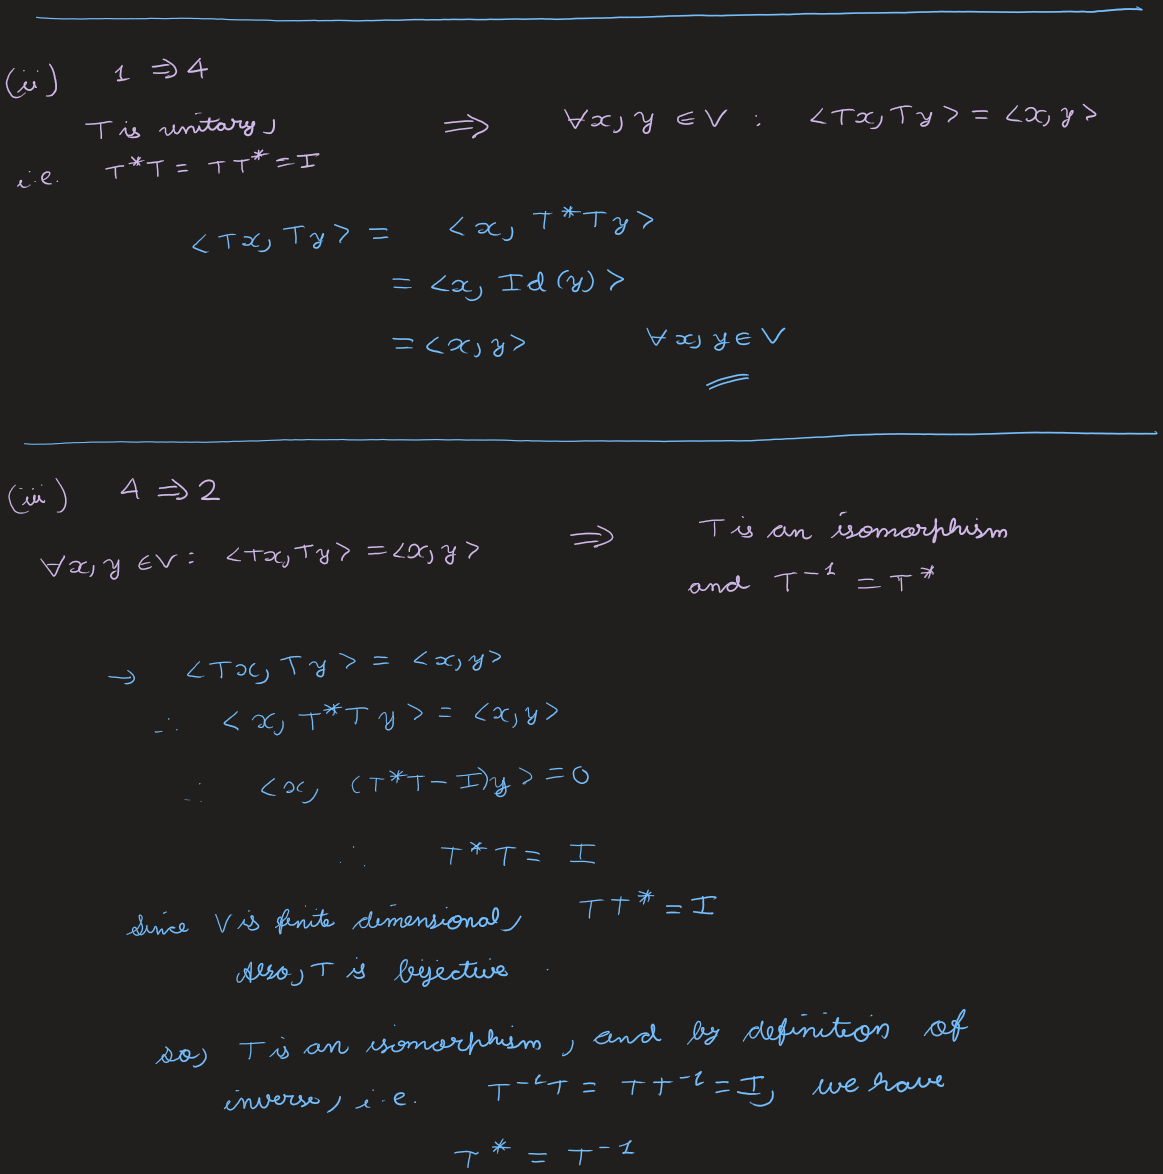 (ii) 1 ⇒ 4
T is unitary, ⇒ ∀x, y ∈ V : <Tx, Ty> = <x, y>
i.e. T*T = TT* = I
<Tx, Ty> = <x, T*Ty>
= <x, Id(y)>
= <x, y> ∀x, y ∈ V
(iii) 4 ⇒ 2
∀x, y ∈ V : <Tx, Ty> = <x, y> ⇒ T is an isomorphism
and T⁻¹ = T*
→ <Tx, Ty> = <x, y>
∴ <x, T*Ty> = <x, y>
∴ <x, (T*T - I)y> = 0
∴ T*T = I
Since V is finite dimensional, TT* = I
Also, T is bijective.
so, T is an isomorphism, and by definition of
inverse, i.e. T⁻¹T = TT⁻¹ = I, we have
T* = T⁻¹